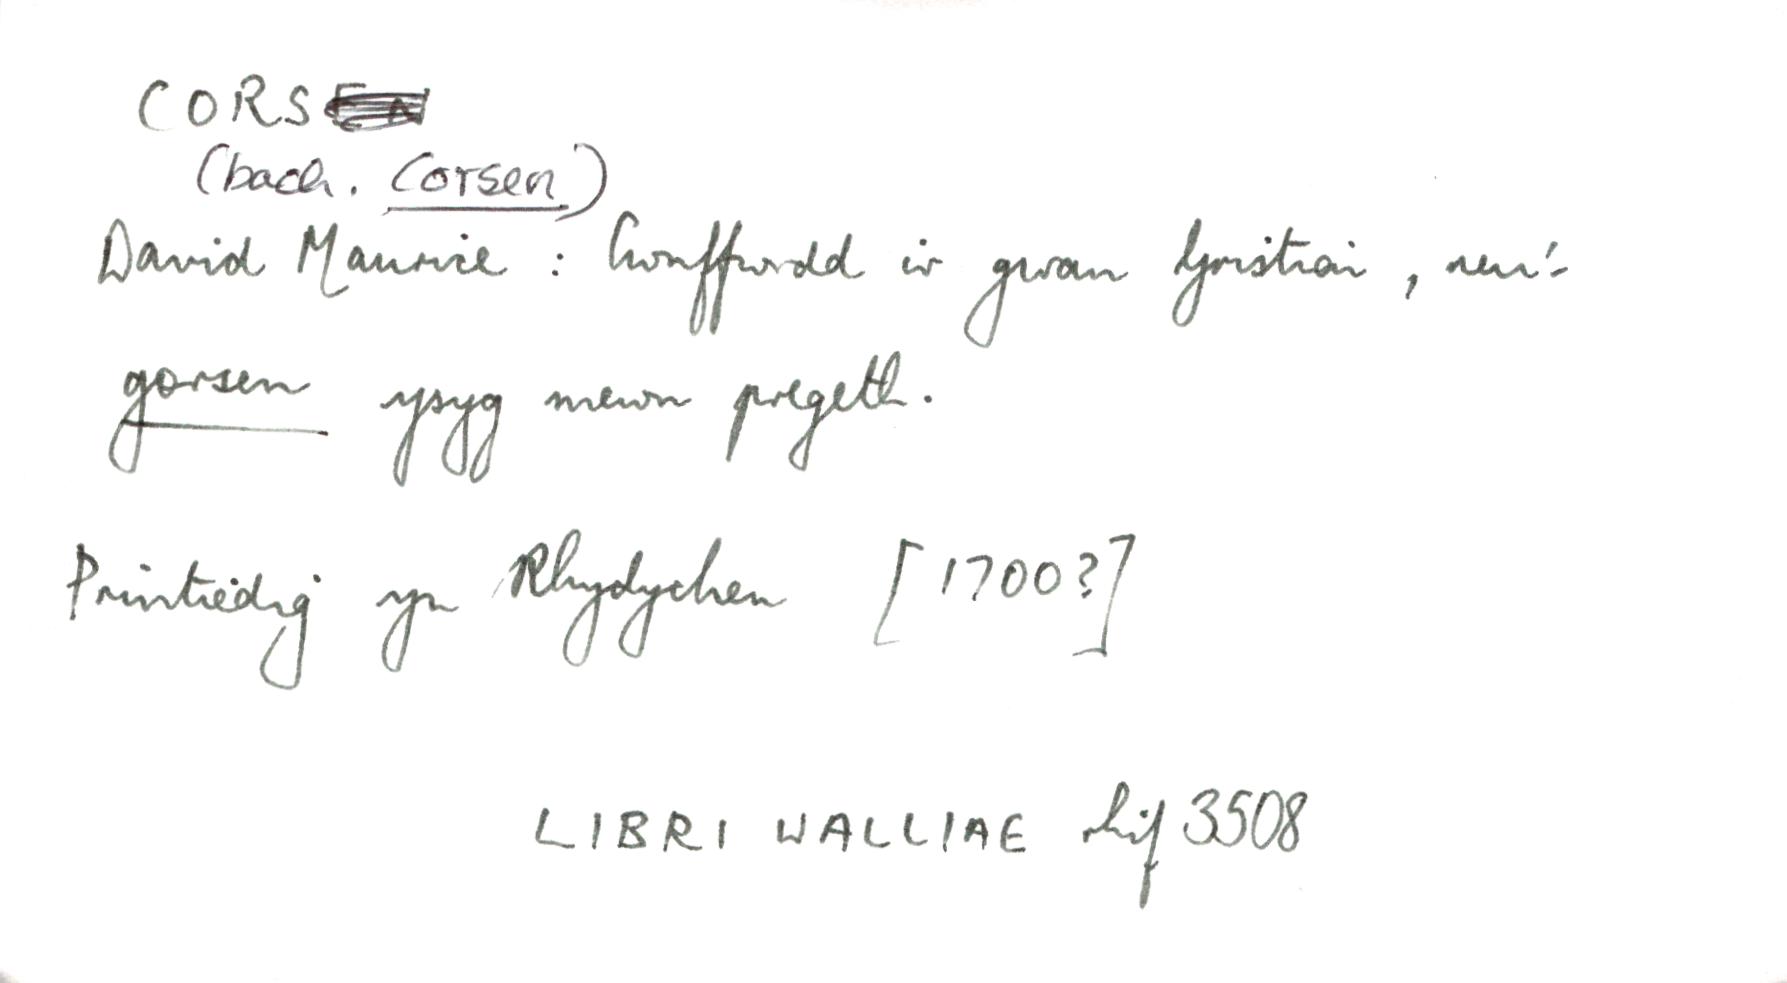 CORS
(bach. Corsen)
David Maurice : Cwnffwrdd ir gwan Gristion, neu'r
gorsen ysyg mewn pregeth.
Printiedig yn Rhydychen [1700?]
LIBRI WALLIAE rhif 3508